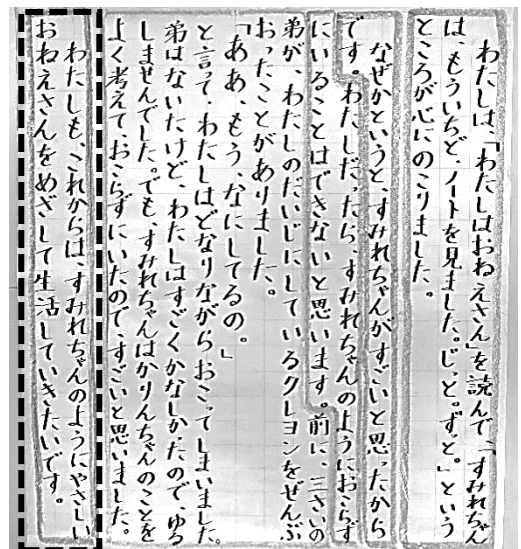 わたしは、「わたしはおねえさん」を読んで、「すみれちゃん
は、もういちど、ノートを見ました。じっと。ずっと。」という
ところが心にのこりました。
なぜかというと、すみれちゃんがすごいと思ったから
です。わたしだったら、すみれちゃんのようにおこらず
にいることはできないと思います。前に、三さいの
弟が、わたしのだいじにしているクレヨンをぜんぶ
おったことがありました。
「ああ、もう、なにしてるの。」
と言って、わたしはどなりながらおこってしまいました。
弟はないたけど、わたしはすごくかなしかったので、ゆる
しませんでした。でも、すみれちゃんはかりんちゃんのことを
よく考えておこらずにいたので、すごいと思いました。
わたしも、これからは、すみれちゃんのようにやさしい
おねえさんをめざして生活していきたいです。